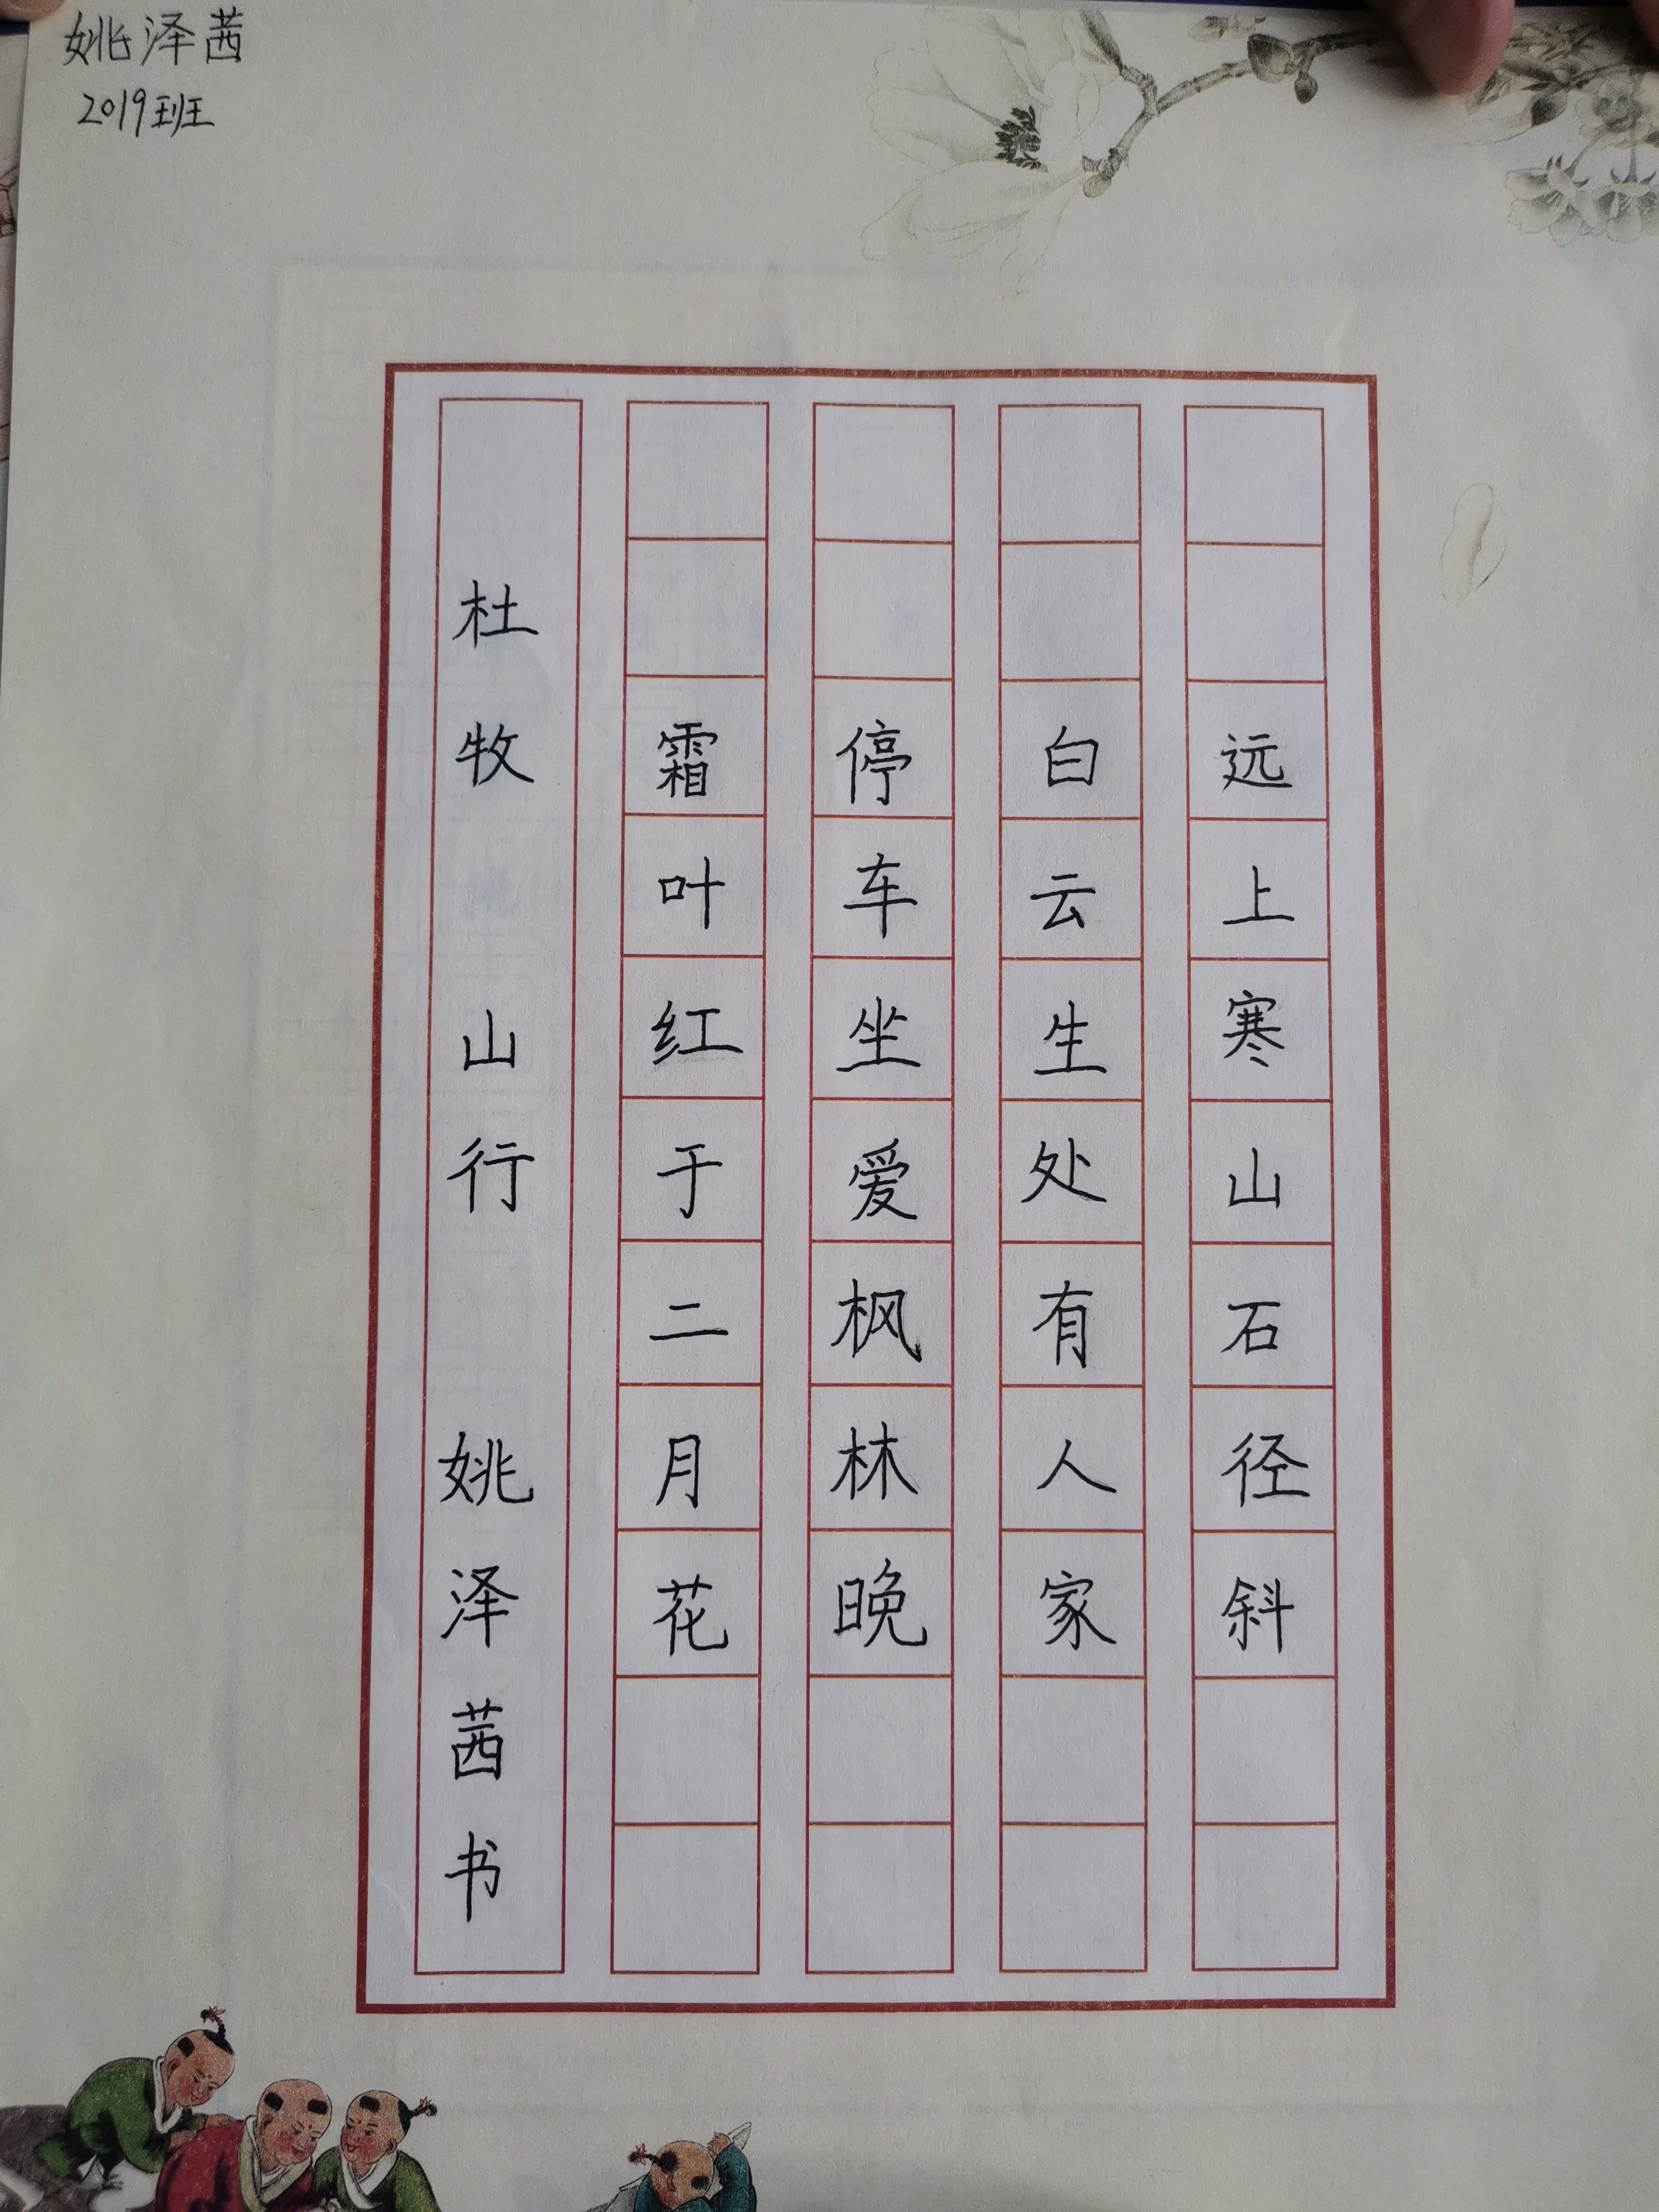 姚泽茜
2019班
远上寒山石径斜
白云生处有人家
停车坐爱枫林晚
霜叶红于二月花
杜牧 山行 姚泽茜书